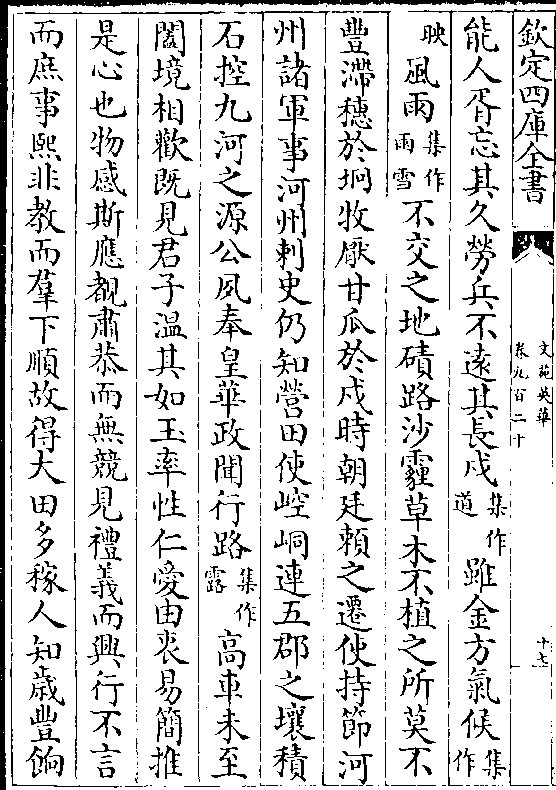 欽定四庫全書
文苑英華
卷九百二十
十七
能人胥忘其久勞兵不遠其長戍集作道雖金方氣候集作
映風雨集作雨雪不交之地磧路沙霾草木不植之所莫不
豐滯穗於坰牧厭甘瓜於戍時朝廷賴之遷使持節河
州諸軍事河州刺史仍知營田使崆峒連五郡之壤積
石控九河之源公夙奉皇華政聞行路集作露高車未至
闔境相歡既見君子溫其如玉率性仁愛由衷易簡推
是心也物感斯應覩肅恭而無競見禮義而興行不言
而庶事熙非教而羣下順故得大田多稼人知歲豐餉